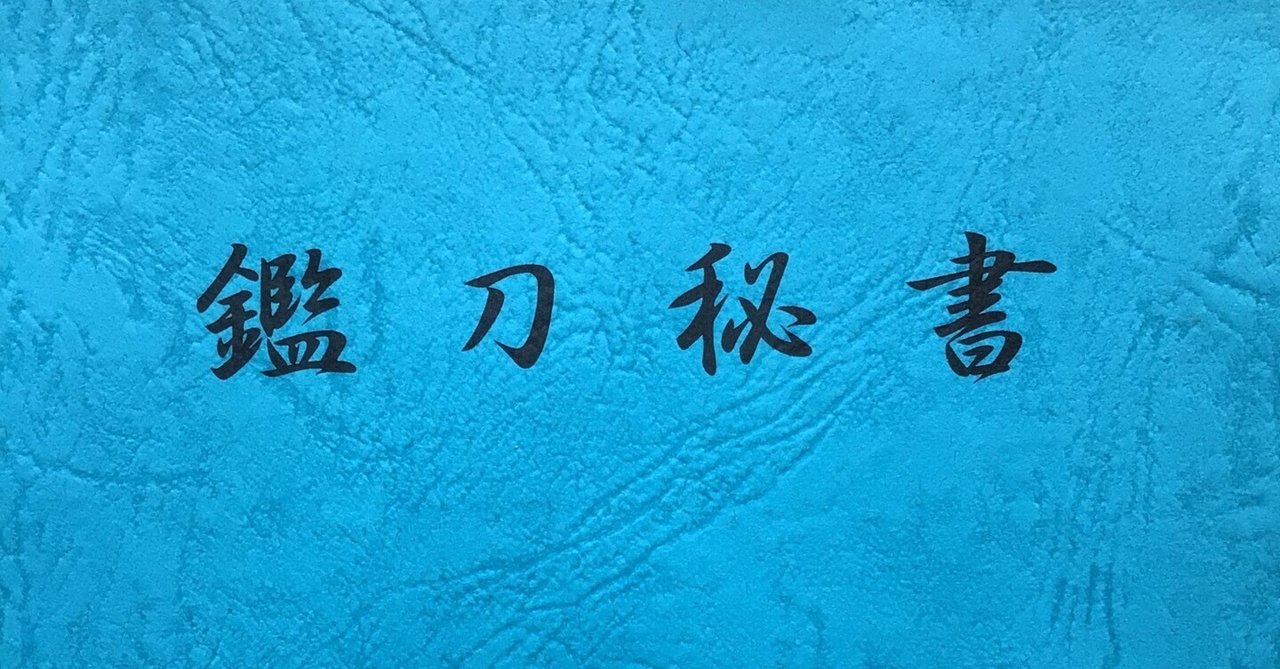 鑑刀秘書